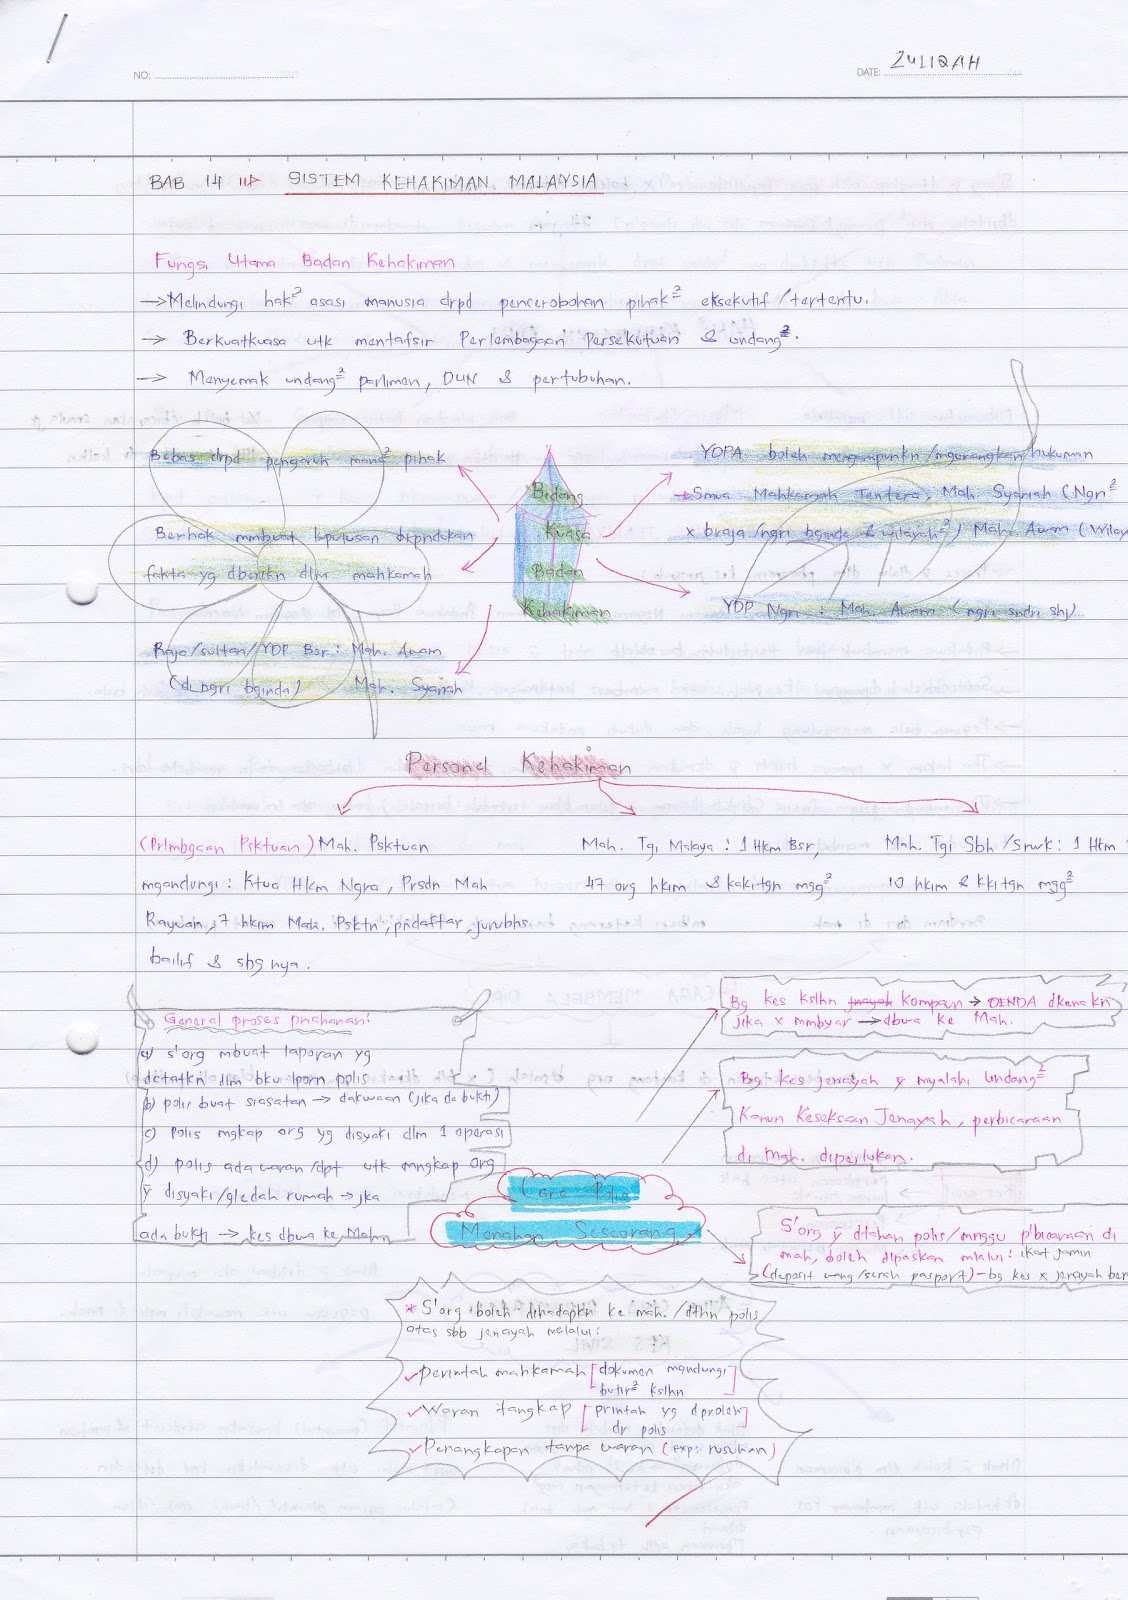 NO:
DATE: ZULIQAH
BAB 14 SISTEM KEHAKIMAN MALAYSIA
Fungsi Utama Badan Kehakiman
→ Melindungi hak² asasi manusia drpd pencerobohan pihak² eksekutif / tertentu.
→ Berkuatkuasa utk mentafsir Perlembagaan Persekutuan & undang².
→ Menyemak undang² parlimen, DUN & pertubuhan.
Bebas drpd pengaruh mana² pihak
Berhak mmbuat kputusan brpndukan
fakta yg dberikn dlm mahkamah
Raja/sultan/YDP Bsr : Mah. Awam
(di ngri bginda) Mah. Syariah
Bidang
Kuasa
Badan
Kehakiman
YDPA boleh mengampunkn/mgurangkan hukuman
→ Smua Mahkamah Tentera, Mah. Syariah (Ngri²
x braja/ngri bginda & wilayah²) Mah. Awam (Wilay
YDP Ngri : Mah. Awam (ngri sndri shj)
Personel Kehakiman
(Prlmbgaan Psktuan) Mah. Psktuan
mgandungi : Ktua Hkm Ngra, Prsdn Mah
Rayuan, 7 hkim Mah. Psktn, pndaftar, jurubhs
bailif & sbg nya.
Mah. Tgi Malaya : 1 Hkm Bsr,
47 org hkim & kakitgn msg²
Mah. Tgi Sbh / Srwk : 1 Hkm
10 hkim & kkitgn msg²
General proses pnahanan:
a) s'org mbuat laporan yg
dctatkn dlm bku lporn polis
b) polis buat siasatan → dakwaan (jika da bukti)
c) Polis mgkap org yg disyaki dlm 1 operasi
d) polis ada waran /dpt utk mngkap org
ÿ disyaki/gledah rumah → jka
ada bukti → kes dbwa ke Mahn
Cara Polis
Menahan Seseorang
Bg kes kslhn jnayah kompaun → DENDA dkenakn
jika x mmbyar → dbwa ke Mah.
Bg kes jenayah ÿ myalahi Undang²
Kanun Keseksaan Jenayah, perbicaraan
di mah. diperlukan.
S'org ÿ dtahan polis/mnggu p'bicaraan di
mah, boleh dipaskan mlalui : ikat jamin
(deposit wang/serah pasport) - bg kes x jenayah ber
* S'org boleh dihadapkn ke mah. / dthn polis
atas sbb jenayah melalui:
✓ perintah mahkamah [dokumen mgndungi
butir² kslhn]
✓ Waran tangkap [printah yg dproleh
dr polis]
✓ Penangkapan tanpa waran (exp: rusuhan)